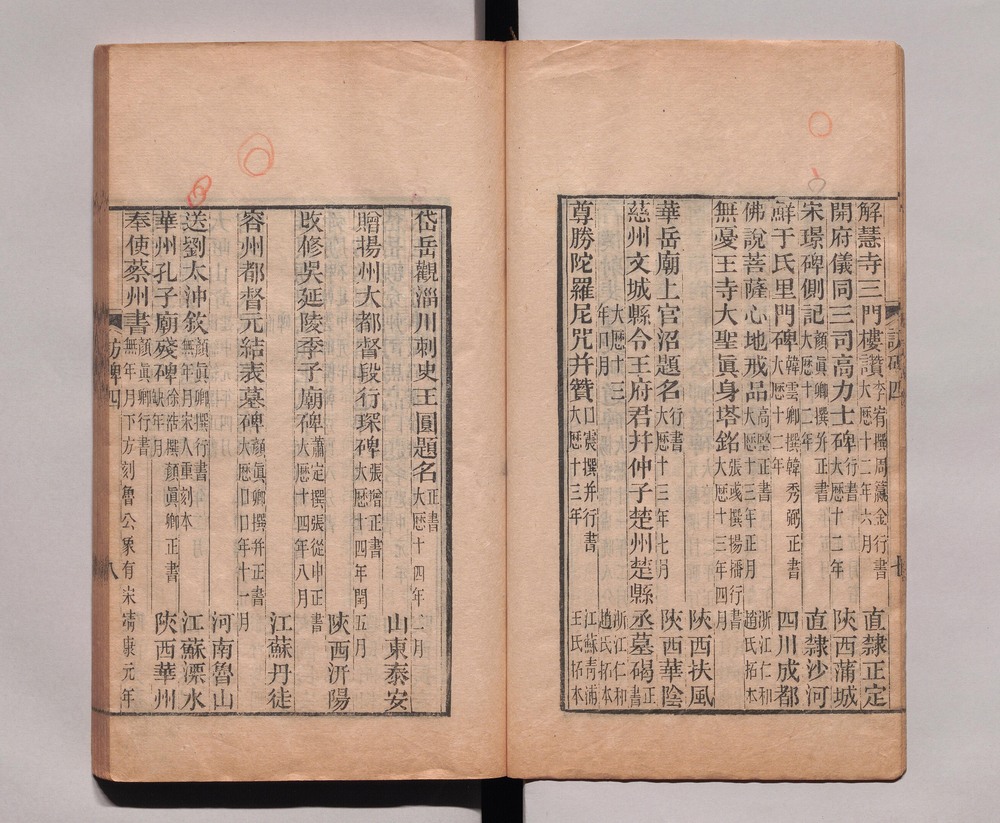 解慧寺三門樓讚 李宥撰周 金行書 大歷十二年六月 直隸正定
開府儀同三司高力士碑 行書 大歷十二年 陝西蒲城
宋璟碑側記 顏眞卿撰并正書 大歷十二年 直隸沙河
鮮于氏里門碑 韓雲卿撰韓秀弼正書 大歷十二年 四川成都
佛說菩薩心地戒品 高 正書 大歷十三年正月 浙江仁和趙氏拓本
無憂王寺大聖眞身塔銘 張彧撰揚播行書 大歷十三年四月 陝西扶風
華岳廟上官沼題名 行書 大歷十三年七月 陝西華陰
慈州文城縣令王府君并仲子楚州楚縣丞墓碣 正書
大歷十三年四月 浙江仁和趙氏拓本
尊勝陀羅尼咒并贊 口震撰并行書 大歷十三年 江蘇青浦王氏拓本
岱岳觀淄川刺史王圓題名 正書 大歷十四年二月 山東泰安
贈揚州大都督段行琛碑 張增正書 大歷十四年閏五月 陝西汧陽
改修吳延陵季子廟碑 蕭定撰張從申正書 大歷十四年八月 江蘇丹徒
容州都督元結表墓碑 顏眞卿撰并正書 大歷口口年十一月 河南魯山
送劉太沖敘 顏眞卿撰行書 無年月宋人重刻本 江蘇溧水
華州孔子廟殘碑 徐浩撰顏眞卿正書 缺年月 陝西華州
奉使蔡州書 顏眞卿行書 無年月下方刻魯公象有宋靖康元年
訪碑四
八